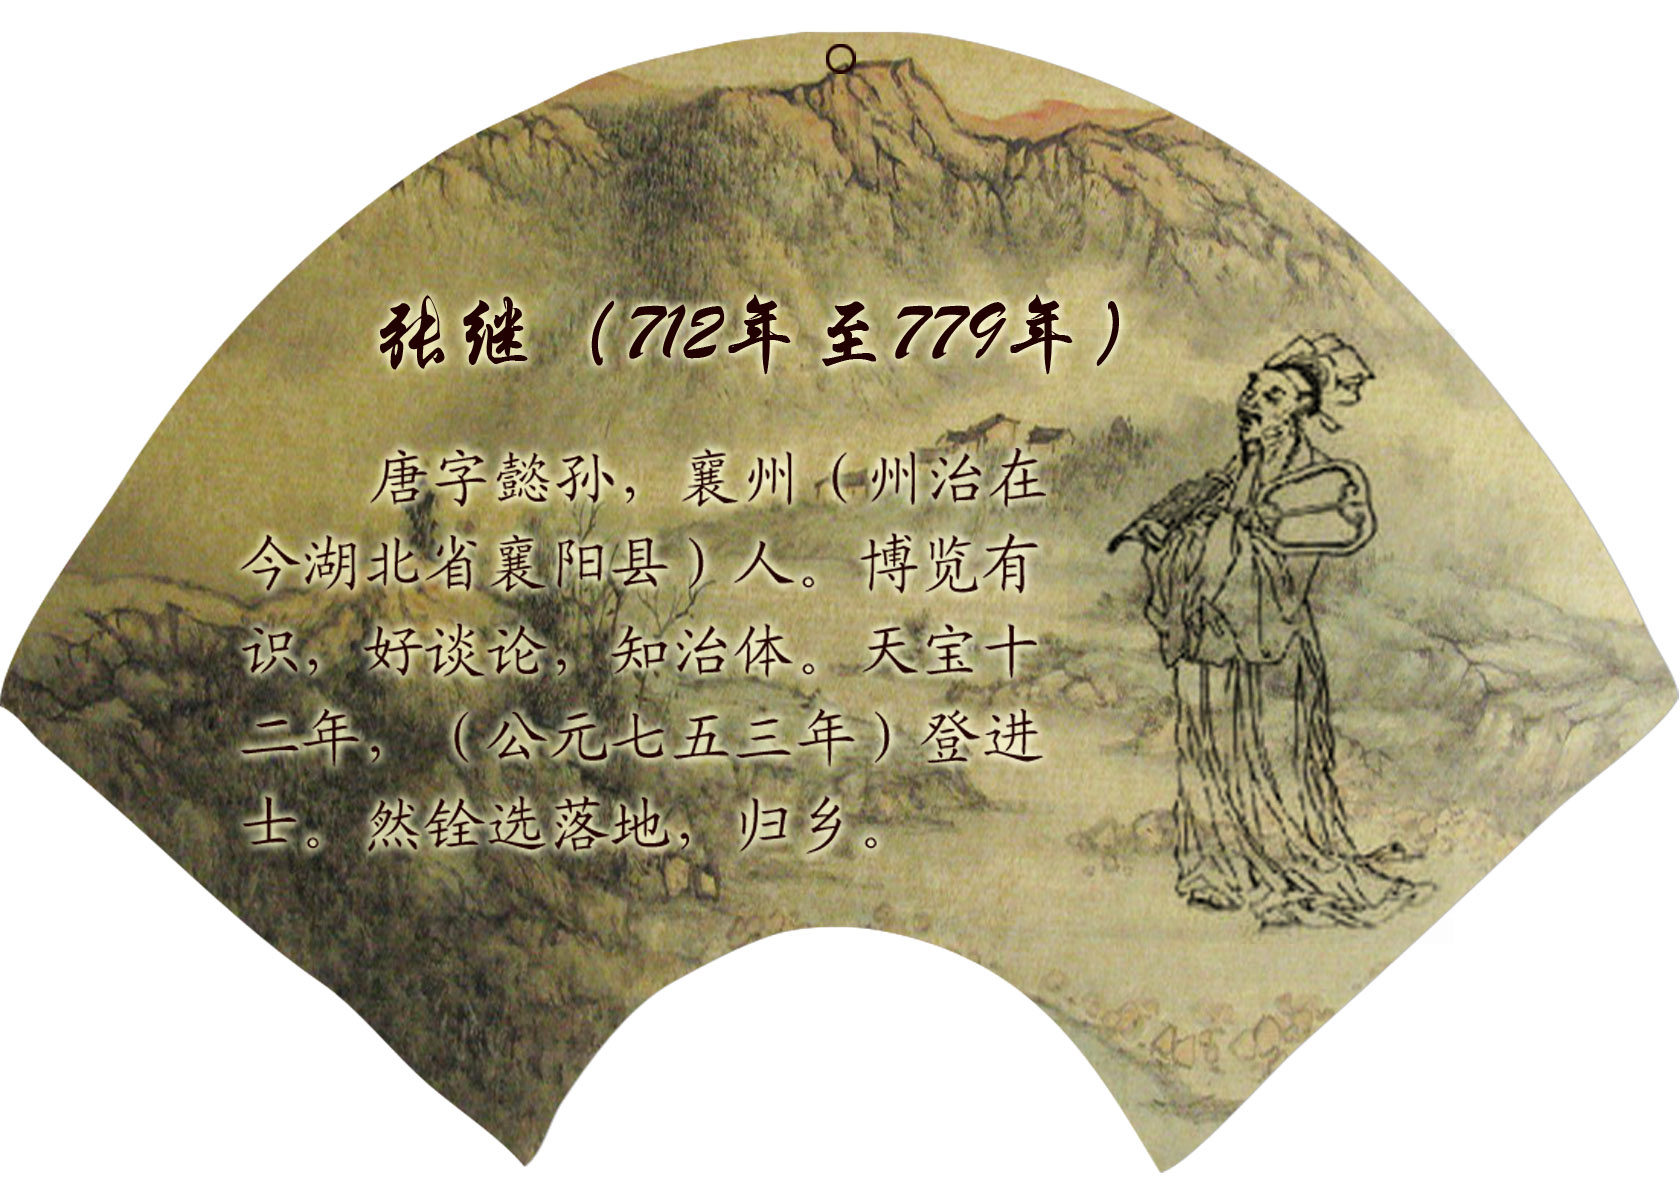 张继（712年至779年）
唐字懿孙，襄州（州治在
今湖北省襄阳县）人。博览有
识，好谈论，知治体。天宝十
二年，（公元七五三年）登进
士。然铨选落地，归乡。